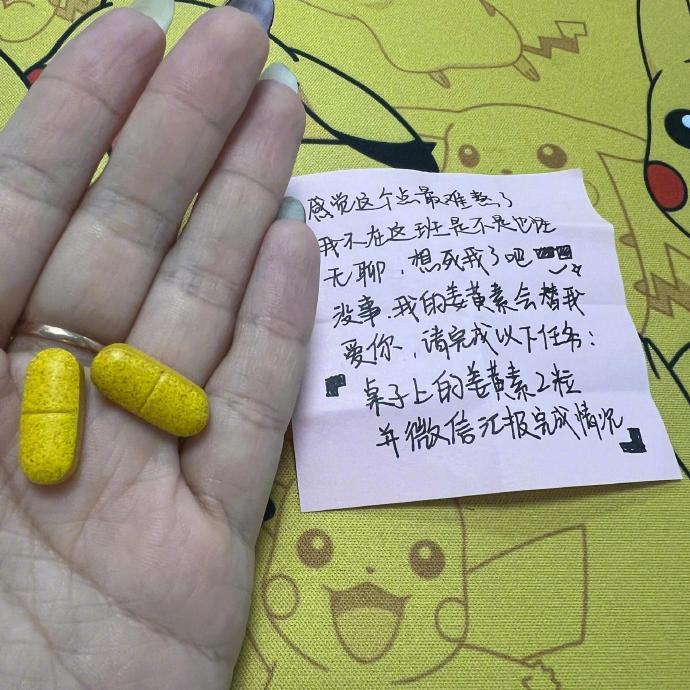 感觉这个点最难熬了
我不在这班是不是也挺
无聊，想死我了吧
没事，我的姜黄素会替我
爱你，请完成以下任务：
『桌子上的姜黄素2粒
并微信汇报完成情况』